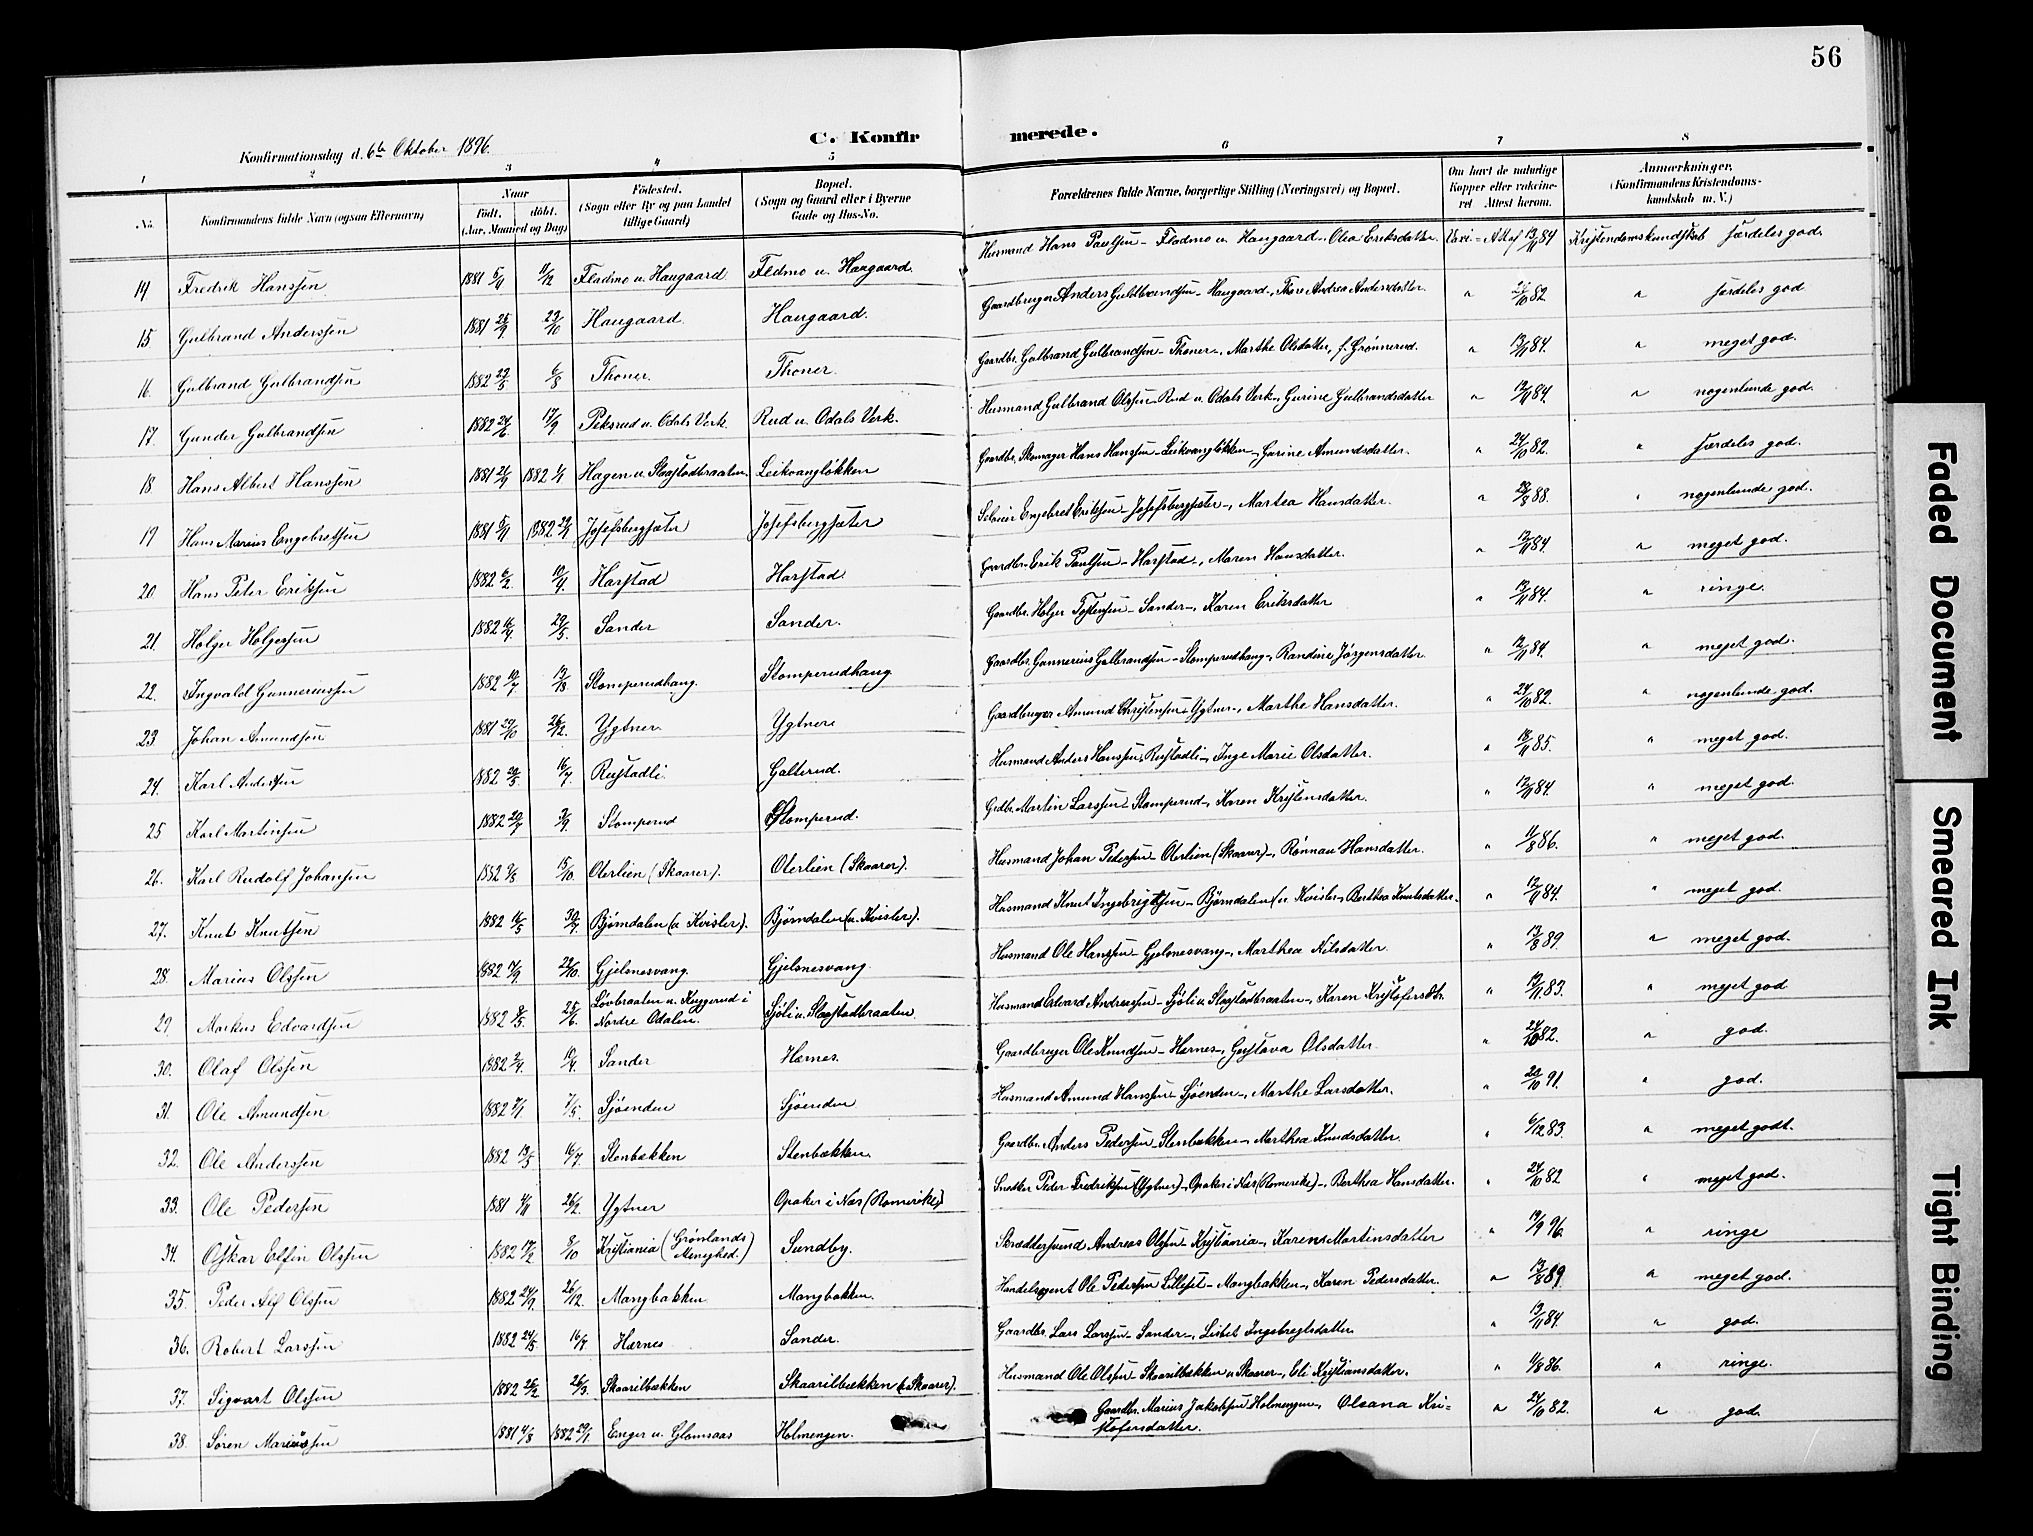 56
Konfirmationsdag d. 6te Oktober 1896.
C. Konfirmerede.
1 2 3 4 5 6 7 8
No. Konfirmandens fulde Navn (ogsaa Efternavn) Naar Født, døbt. (Aar, Maaned og Dag) Fødested. (Sogn eller By og paa Landet tillige Gaard) Bopæl. (Sogn og Gaard eller i Byerne Gade og Hus-No. Forældrenes fulde Navne, borgerlige Stilling (Næringsvei) og Bopæl. Om havt de naturlige Kopper eller vakcineret Attest herom. Anmærkninger. (Konfirmandens Kristendomskundskab m. V.)
14 Fredrik Hanssen 1881 5/11 11/12 Fladmo u. Haugaard Fldmo u. Haugaard. Husmand Hans Paulsen - Fladmo u. Haugaard, Olea Eriksdatter. 13/11 84 Kristendomskundskab særdeles god.
15 Gulbrand Anderssen 1881 25/9 23/10 Haugaard. Haugaard. Gaardbruger Anders Gulbrandsen - Haugaard -, Thore Andrea Andersdatter. " 24/10 82 " særdeles god
16. Gulbrand Gulbrandsen 1882 Thoner. Thoner. Gaardbr. Gulbrand Gulbrandsen - Thoner -, Marthe Olsdatter, f. Grønnerud. " 13/11 84. " meget god.
17. Gunder Gulbrandsen 1882 17/9 Peksrud u. Odals Verk. Rud u. Odals Verk. Husmand Gulbrand Olssen - Rud u. Odals Verk -, Gurine Gulbrandsdatter " 13/11 84. " nogenlunde god.
18. Hans Albert Hanssen 1881 1882 1/1 Hagen u. Slaastadbraaten Leikvangløkken Gaardbr. Skomager Hans Hanssen - Leikvangløkken -, Gurine Amundsdatter. " 24/10 82. " særdeles god.
19 Hans Marius Engebretsen 1881 5/11 1882 Josefsbergsæter Josefsbergsæter Engebret Eriksen - Josefsbergsæter -, Martea Hansdatter. " 88. " nogenlunde god.
20 Hans Peter Eriksen 1882 6/2 10/4. Harstad Harstad Gaardbr. Erik Paulsen - Harstad -, Maren Hansdatter. " 13/11 84. " meget god.
21. Holger Holgersen 1882 29/5. Sander Sander. Gaardbr. Holger Tostensen - Sander -, Karen Eriksdatter " 13/11 84. " ringe.
22. Ingvald Gunneriussen 1882 10/7 13/8 Stomperudhaug. Stomperudhaug Gaardbr. Gunnerius Gulbrandsen - Stomperudhaug -, Randine Jørgensdatter " 13/11 84. " meget god.
23 Johan Amundsen 1881 29/10 26/12. Ygtner Ygtner Gaardbruger Amund Christensen - Ygtner -, Marthe Hansdatter. " 24/10 82. " nogenlunde god.
24. Karl Andersen 1882 16/7. Rustadli. Galterud. Husmand Anders Hanssen, Rustadli -, Inge Marie Olsdatter. " 85. " meget god.
25 Karl Martinsen 1882 3/9. Stomperud Stomperud. Grdbr. Martin Larssen - Stomperud -, Karen Kristensdatter. " 13/11 84. " meget god.
26. Karl Rudolf Johansen 1882 15/10. Oterlien (Skaarer). Oterlien (Skaarer). Husmand Johan Pedersen - Oterlien (Skaarer) -, Rønnau Hansdatter. " 11/8 86. " meget god.
27. Knut Knutsen 1882 30/7. Bjørndalen (u Kvisler). Bjørndalen (u. Kvisler). Husmand Knut Ingebrigtsen - Bjørndalen (u Kvisler -, Berthea Knutsdatter. " 13/11 84. " meget god.
28. Marius Olssen 1882 29/10. Gjelsnesvang. Gjelsnesvang. Husmand Ole Hanssen - Gjelsnesvang -, Marthea Nilsdatter. " 13/8 89. " meget god.
29. Markus Edvardsen 1882 25/6. Løvbraaten u. Knyggerud i Nordre Odalen. Sjøli u. Slaastadbraaten. Husmand Edvard Andreassen - Sjøli u Slaastadbraaten -, Karen Kristofersdtr. " 83. " meget god
30. Olaf Olssen 1882 10/4. Sander Hærnes. Gaardbruger Ole Knudsen - Hærnes -, Gustava Olsdatter. " 24/10 82. " god.
31. Ole Amundsen 1882 7/5. Sjøenden Sjøenden Husmand Amund Hanssen - Sjøenden -, Marthe Larsdatter. " 20/10 91. " god.
32. Ole Anderssen 1882 13/5 16/7. Stenbækken Stenbækken. Gaardbr. Anders Pedersen - Stenbækken -, Marthea Knudsdatter. " 6/12 83. " meget godt.
33. Ole Pedersen 1881 26/12. Ygtner Opaker i Næs (Romerike) Snedker Peder Fredriksen (Ygtner) -, Opaker i Næs (Romerike) -, Berthea Hansdatter. " 24/10 82 " meget god.
34. Oskar Elfin Olssen 1882 8/10 Kristiania (Grønlands Menighed.) Sundby. Skræddersvend Andreas Olsen - Kristiania -, Karen Martinsdatter " 19/9 96. " ringe
35. Peder Alf Olssen 1882 24/9 26/12. Mangbakken Mangbakken. Handelsagent Ole Pedersen Lilleset - Mangbakken -, Karen Pedersdatter. " 13/8 89. " meget god.
36. Robert Larssen 1882 24/5 16/7. Hærnes Sander. Gaardbr. Lars Larssen - Sander -, Lisbet Ingebregtsdatter. " 13/11 84. " god.
37. Sigvart Olssen 1882 26/2 26/3. Skaarilbækken Skaarilbækken (u Skaarer). Husmand Ole Olssen - Skaarilbækken u Skaarer -, Eli Kristiansdatter. " 11/8 86. " ringe.
38. Søren Mariussen 1881 4/8 1882 29/1 Enger u. Glomsaas Holmengen. Gaardbr. Marius Jakobsen Holmengen, Olsana Kristofersdatter. " 24/10 82. " god.
Faded Document
Smeared Ink
Tight Binding